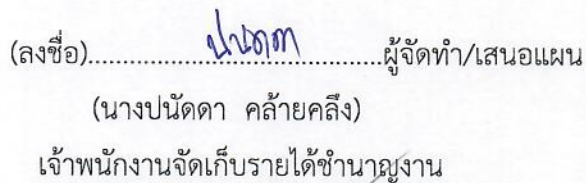 (ลงชื่อ)..........ปนัดดา..........ผู้จัดทำ/เสนอแผน
(นางปนัดดา คล้ายคลึง)
เจ้าพนักงานจัดเก็บรายได้ชำนาญงาน